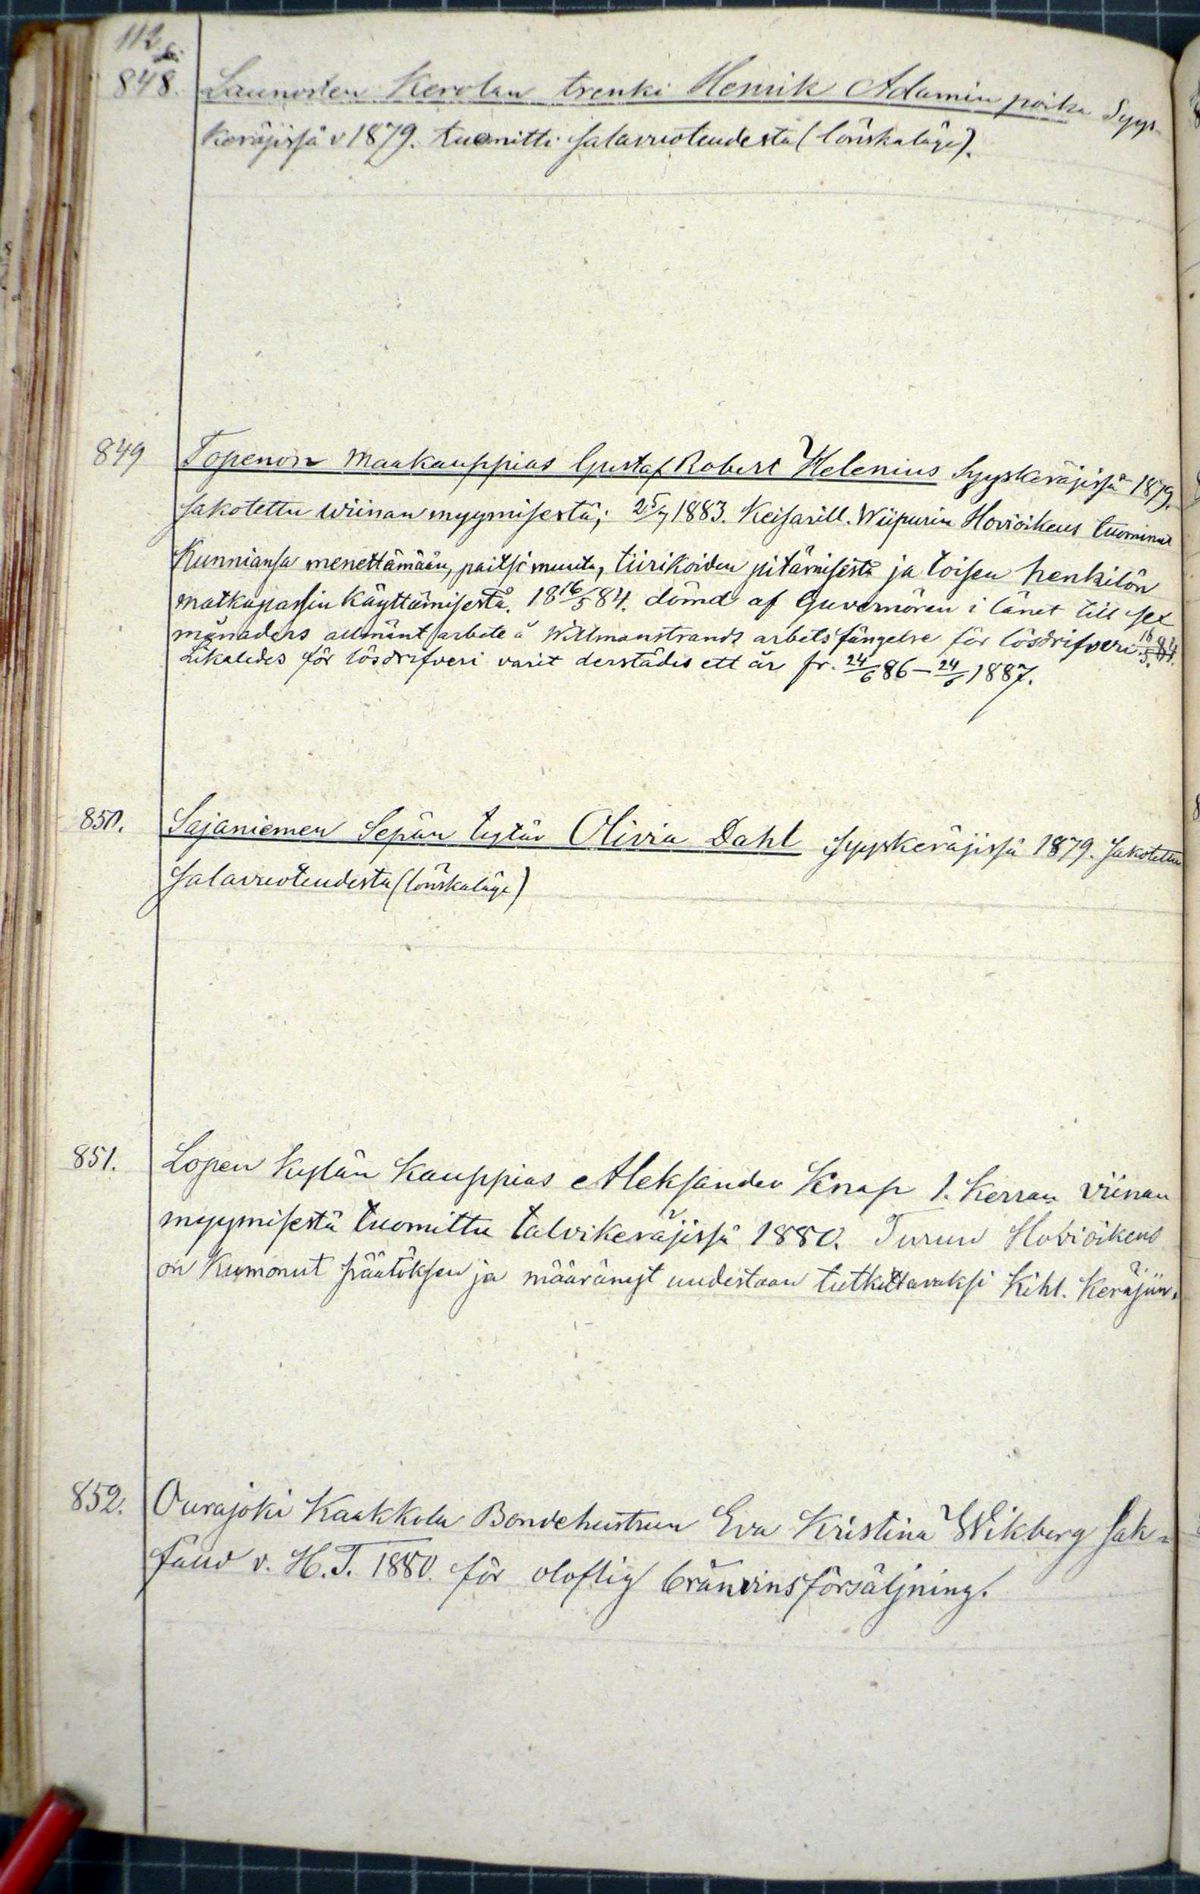 112.
848. Launosten Kerolan trenki Henrik Adamin poika Syys-
keräjissä v 1879. tuomittu salavuoteudesta (lönskaläge).
849 Topenon Maakauppias Gustaf Robert Helenius Syyskeräjissä 1879.
sakotettu wiinan myymisestä; 25/7 1883. Keisarill. Wiipurin Hovioikeus tuominnut
kunniansa menettämään, paitsi muuta, tiirikoiden pitämisestä ja toisen henkilön
matkapassin käyttämisestä. 18 16/5 84. dömd af Guvernören i länet till sex
månaders allmänt arbete å Willmanstrands arbetsfängelse för lösdrifveri 16/5 84.
Likaledes för lösdrifveri varit derstädes ett år fr. 24/6 86 – 24/6 1887.
850. Sajaniemen Sepän tytär Olivia Dahl Syyskeräjissä 1879. Sakotettu
salavuoteudesta (lönskaläge)
851. Lopen kylän kauppias Aleksander Knap 1. kerran viinan
myymisestä tuomittu talvikeräjissä 1880. Turun Hovioikeus
on kumonut päätöksen ja määrännyt uudestaan tutkittavaksi Kihl. Keräjiin.
852. Ourajoki Kaakkola Bondehustrun Eva Kristina Wikberg sak-
fäld v. H.T. 1880 för oloflig bränvinsförsäljning.